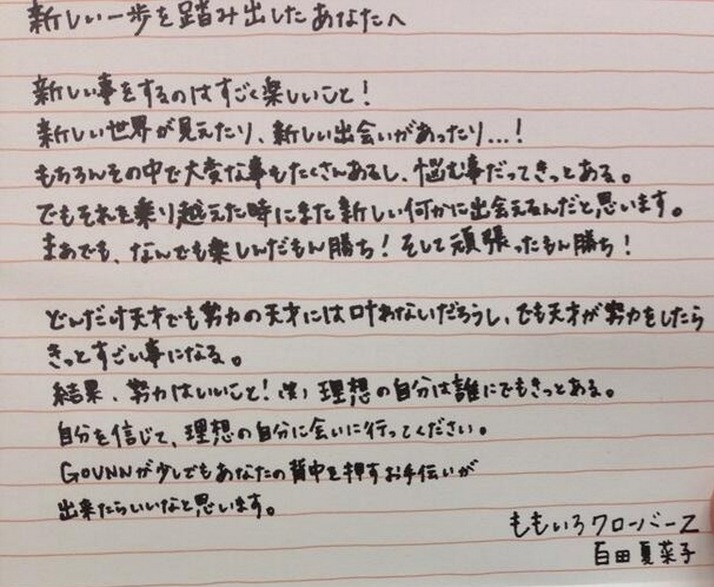 新しい一歩を踏み出したあなたへ
新しい事をするのはすごく楽しいこと！
新しい世界が見えたり、新しい出会いがあったり...！
もちろんその中で大変な事もたくさんあるし、悩む事だってきっとある。
でもそれを乗り越えた時にまた新しい何かに出会えるんだと思います。
まあでも、なんでも楽しんだもん勝ち！そして頑張ったもん勝ち！
どんだけ天才でも努力の天才には叶わないだろうし、でも天才が努力をしたら
きっとすごい事になる。
結果、努力はいいこと！(笑)理想の自分は誰にでもきっとある。
自分を信じて、理想の自分に会いに行ってください。
GOUNNが少しでもあなたの背中を押すお手伝いが
出来たらいいなと思います。
ももいろクローバーZ
百田夏菜子